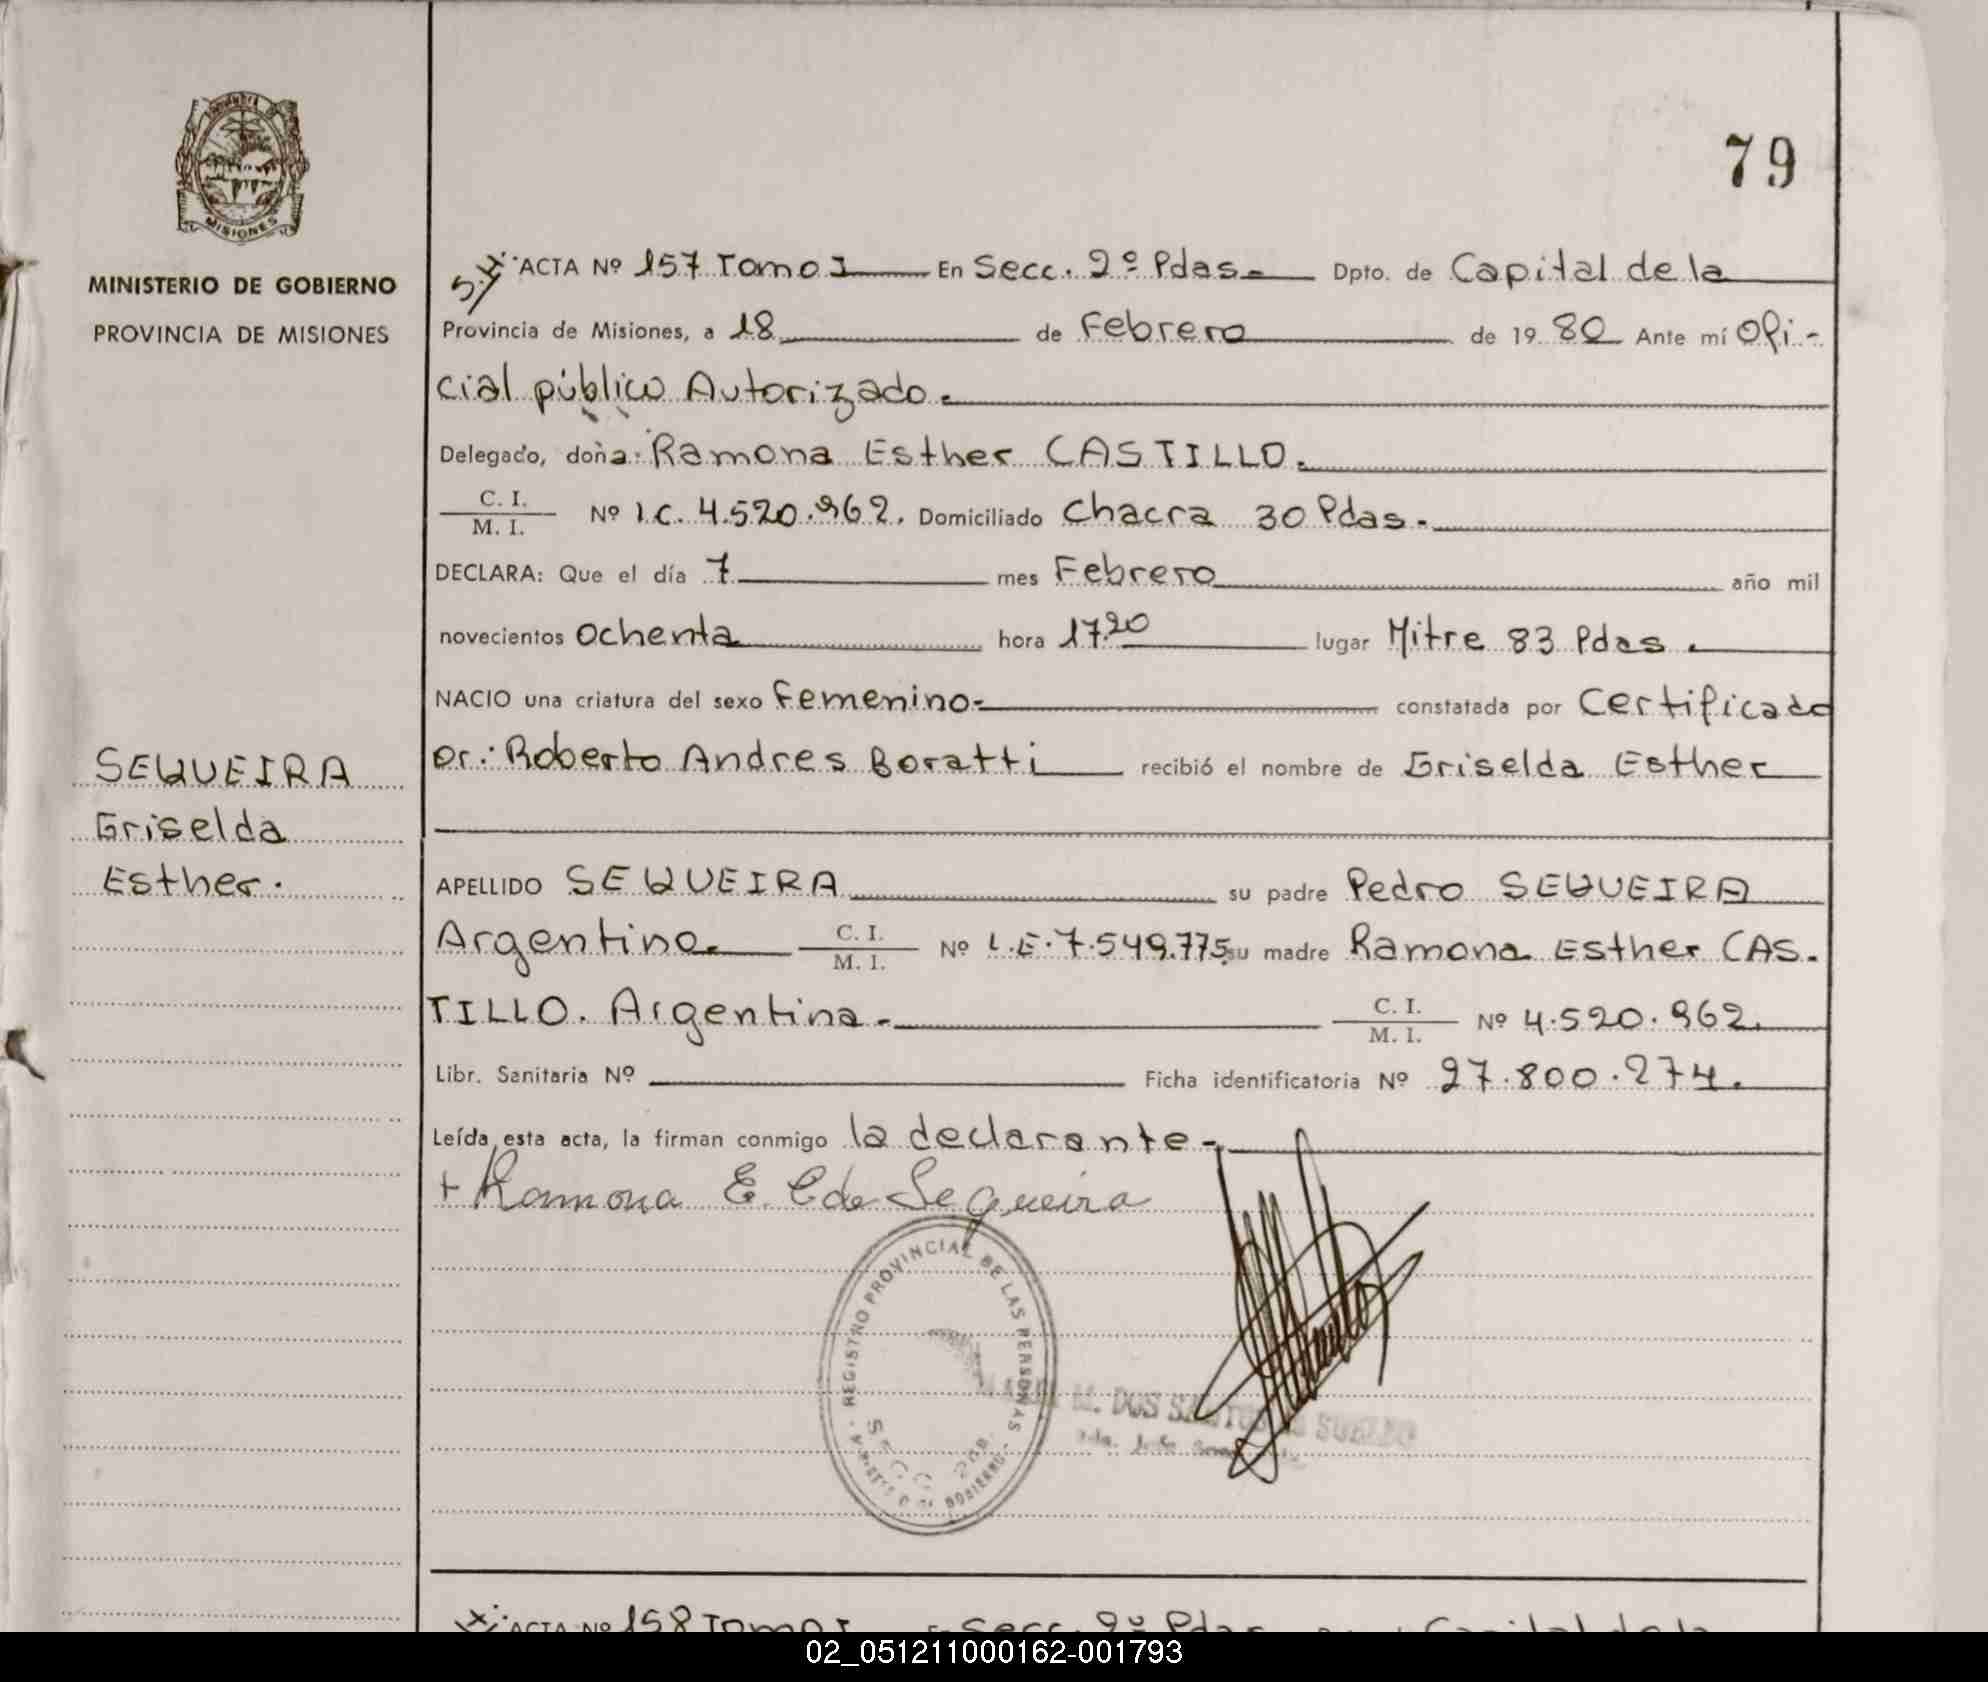 79
MISIONES
MINISTERIO DE GOBIERNO
PROVINCIA DE MISIONES
SEQUEIRA
Griselda
Esther.
ACTA Nº 157 Tomo I En Secc. 2º Pdas. Dpto. de Capital de la
Provincia de Misiones, a 18 de Febrero de 19 80 Ante mí Ofi-
cial público Autorizado.
Delegado, doña: Ramona Esther CASTILLO.
C. I.
M. I.
Nº L.C. 4.520.962. Domiciliado Chacra 30 Pdas.
DECLARA: Que el día 7 mes Febrero año mil
novecientos ochenta hora 17.20 lugar Mitre 83 Pdas.
NACIO una criatura del sexo Femenino- constatada por Certificado
Dr.: Roberto Andres Boratti recibió el nombre de Griselda Esther
APELLIDO SEQUEIRA su padre Pedro SEQUEIRA
Argentino. C. I. M. I. Nº L.E. 7.549.775 su madre Ramona Esther CAS-
TILLO. Argentina. C. I. M. I. Nº 4.520.962.
Libr. Sanitaria Nº Ficha identificatoria Nº 27.800.274.
Leída esta acta, la firman conmigo la declarante-
+ Ramona E. C de Sequeira
REGISTRO PROVINCIAL DE LAS PERSONAS
SECC. 2da.
M. DOS SANTOS
ACTA Nº 158 Tomo I Secc. 2º Pdas Capital de la
02_051211000162-001793